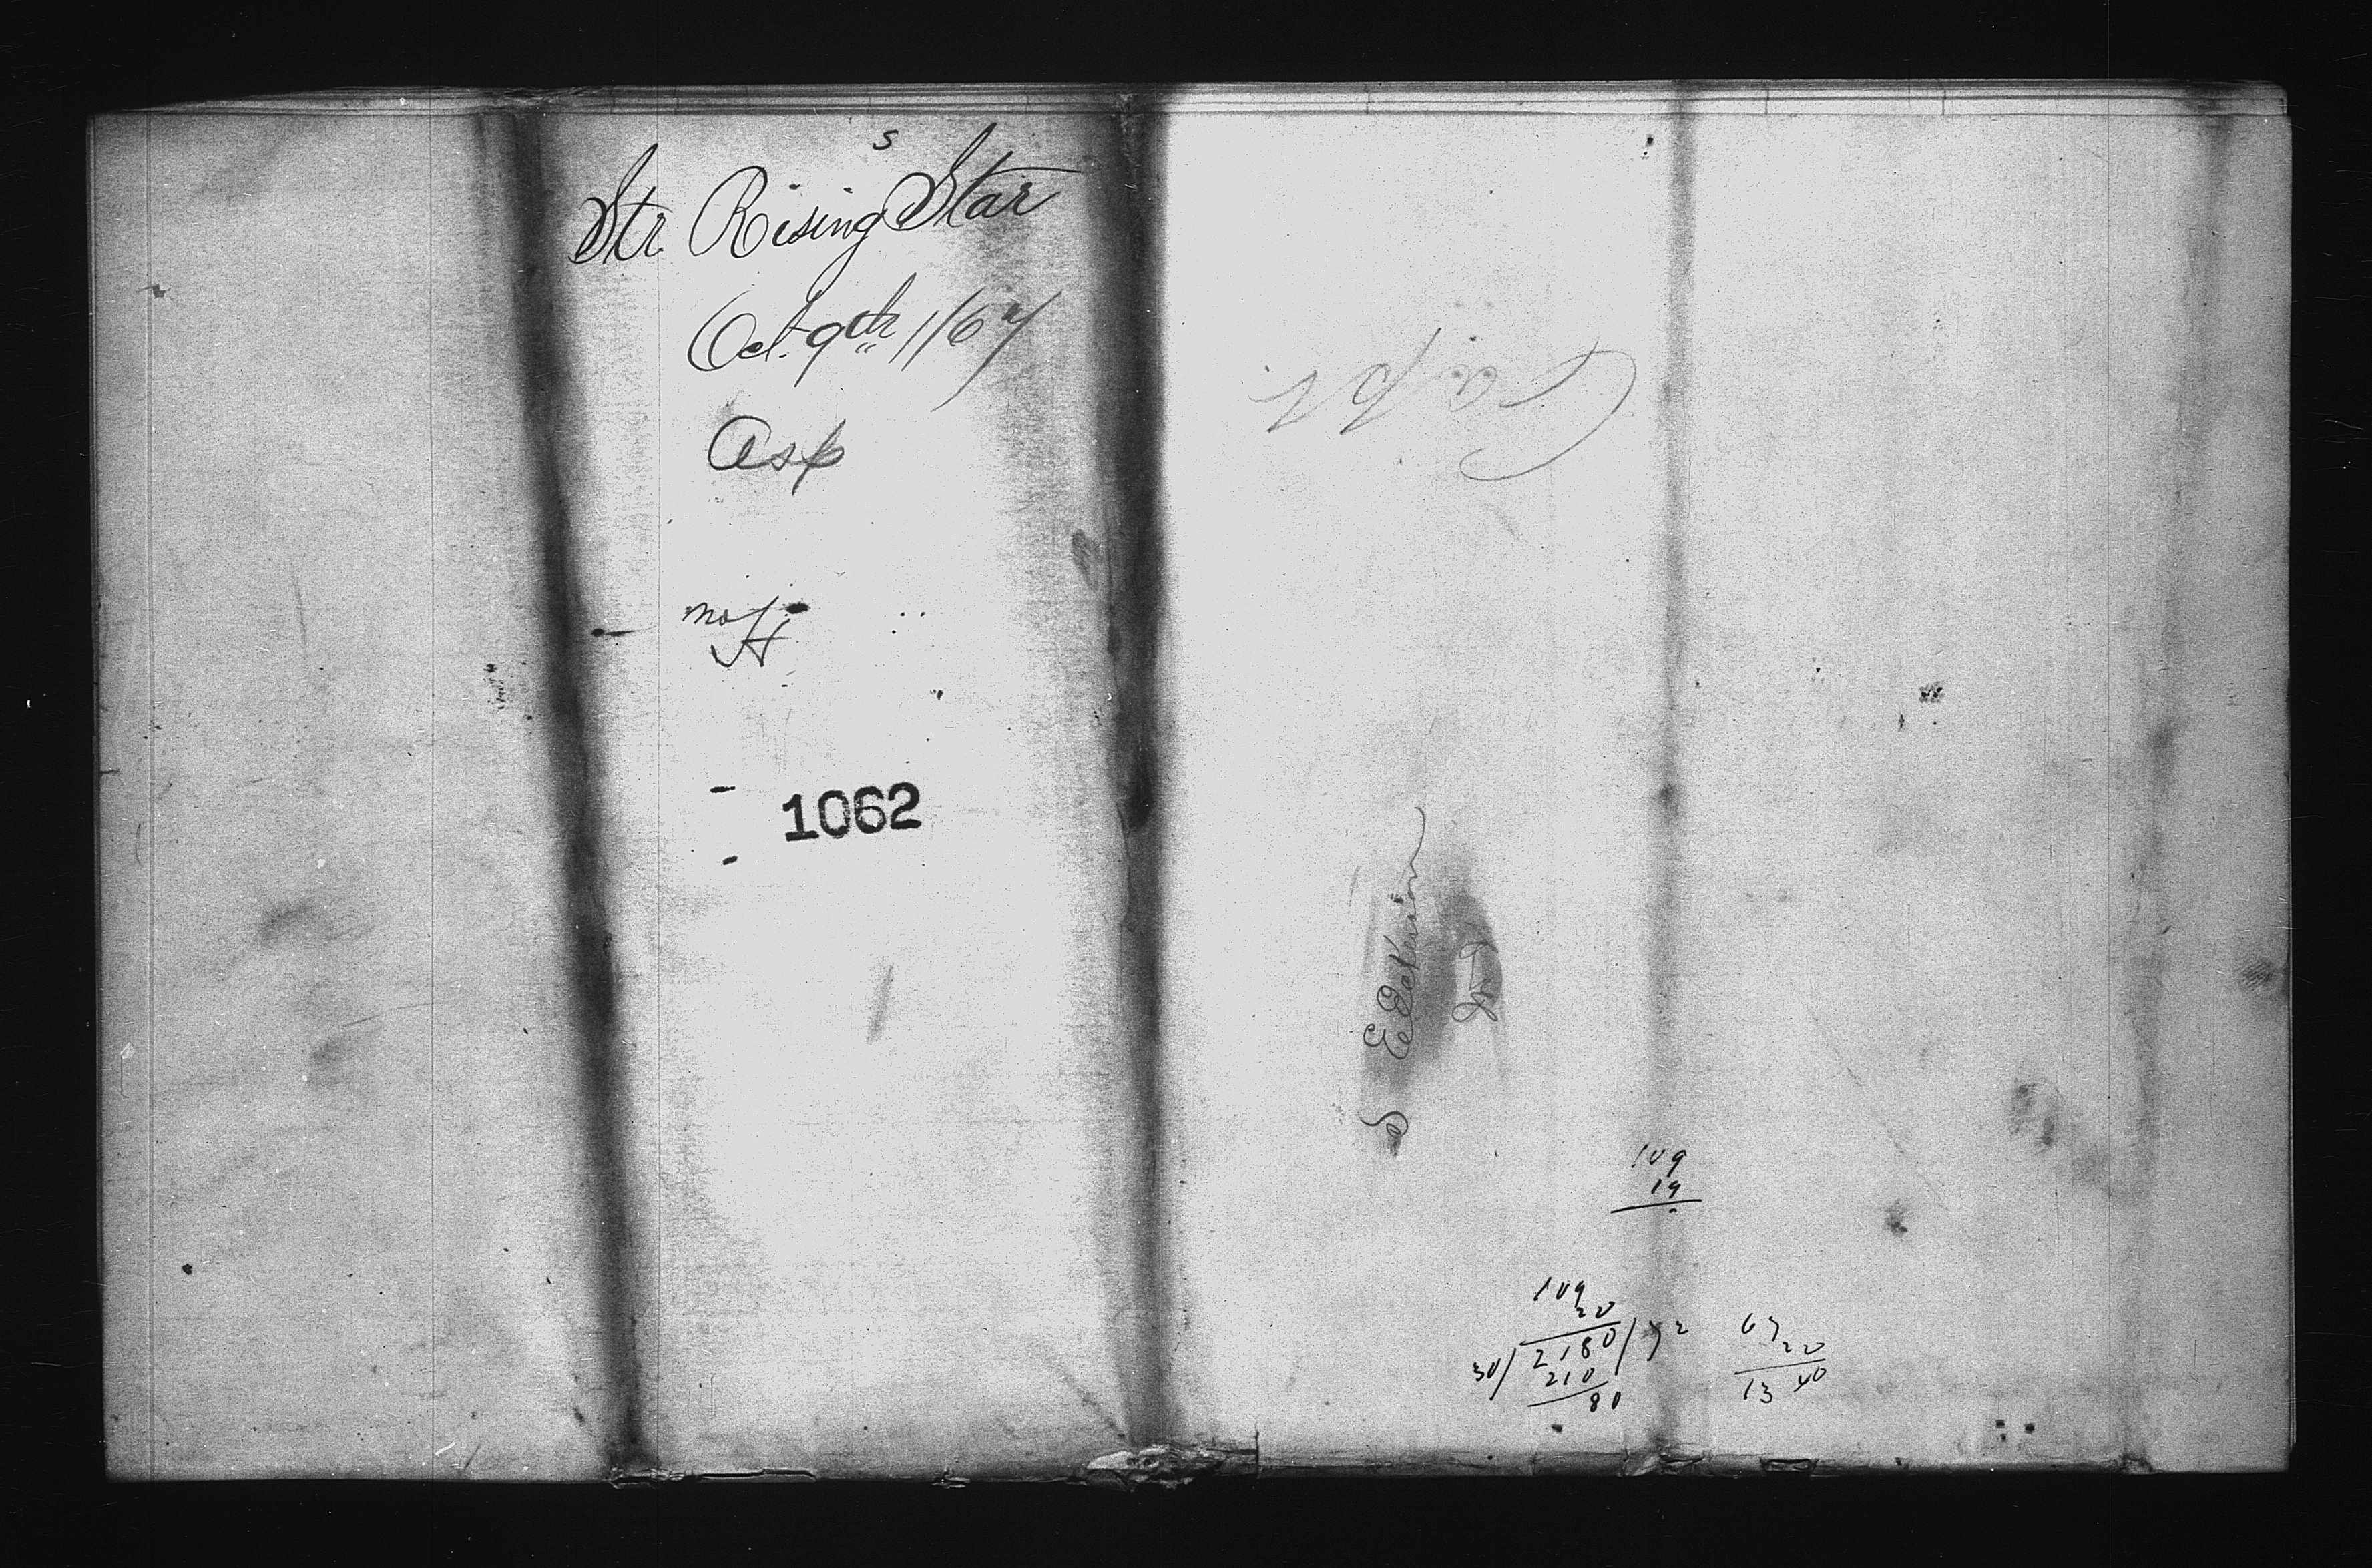 s
Str Rising Star
Oct. 9th 1867
Asp
No
H
1062
Capt
S
109
19
109
20
30/ 2180 / 72
210
80
67
20
1340